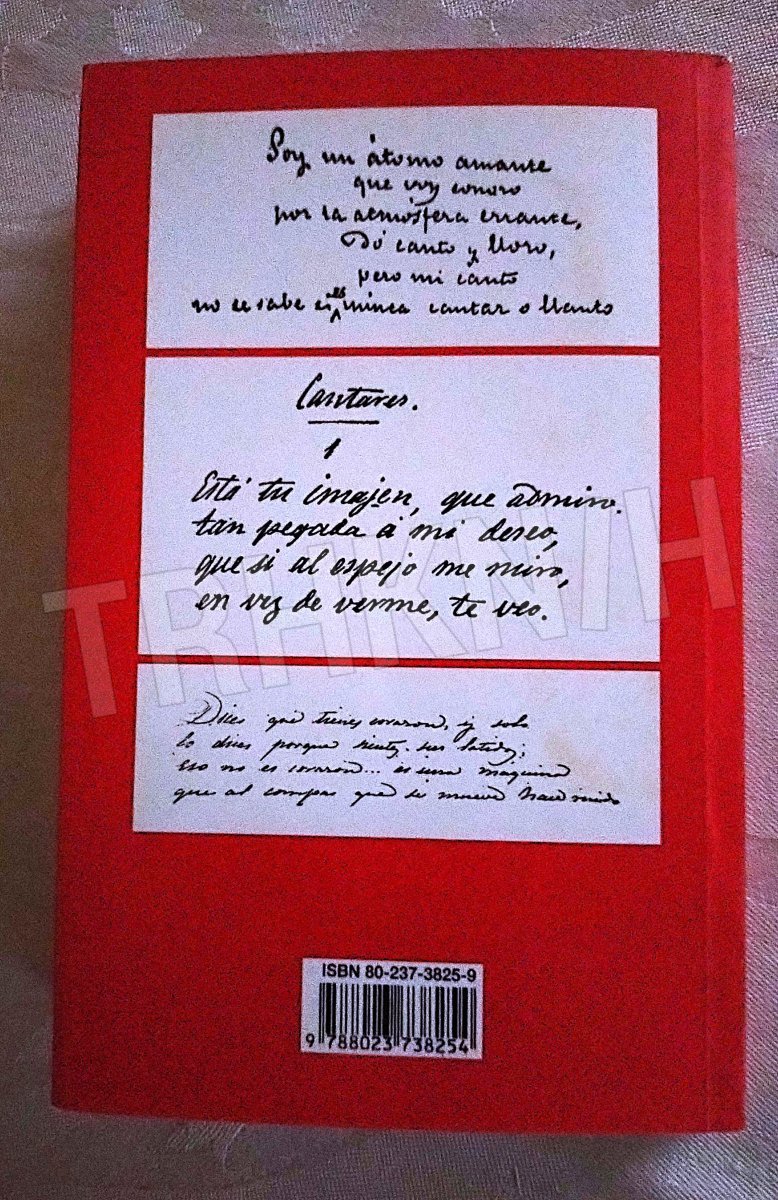 Soy un átomo amante
que voy sonoro
por la atmósfera errante,
Dó canto y lloro,
pero mi canto
no se sabe si es nunca cantar o llanto
Cantares.
1
Está tu imajen, que admiro.
tan pegada á mi deseo,
que si al espejo me miro,
en vez de verme, te veo.
Dices que tienes corazon, y solo
lo dices porque sientes sus latidos;
Eso no es corazon... es una maquina
que al compas que se mueve hace ruido
TRHKNIH
ISBN 80-237-3825-9
9 788023 738254